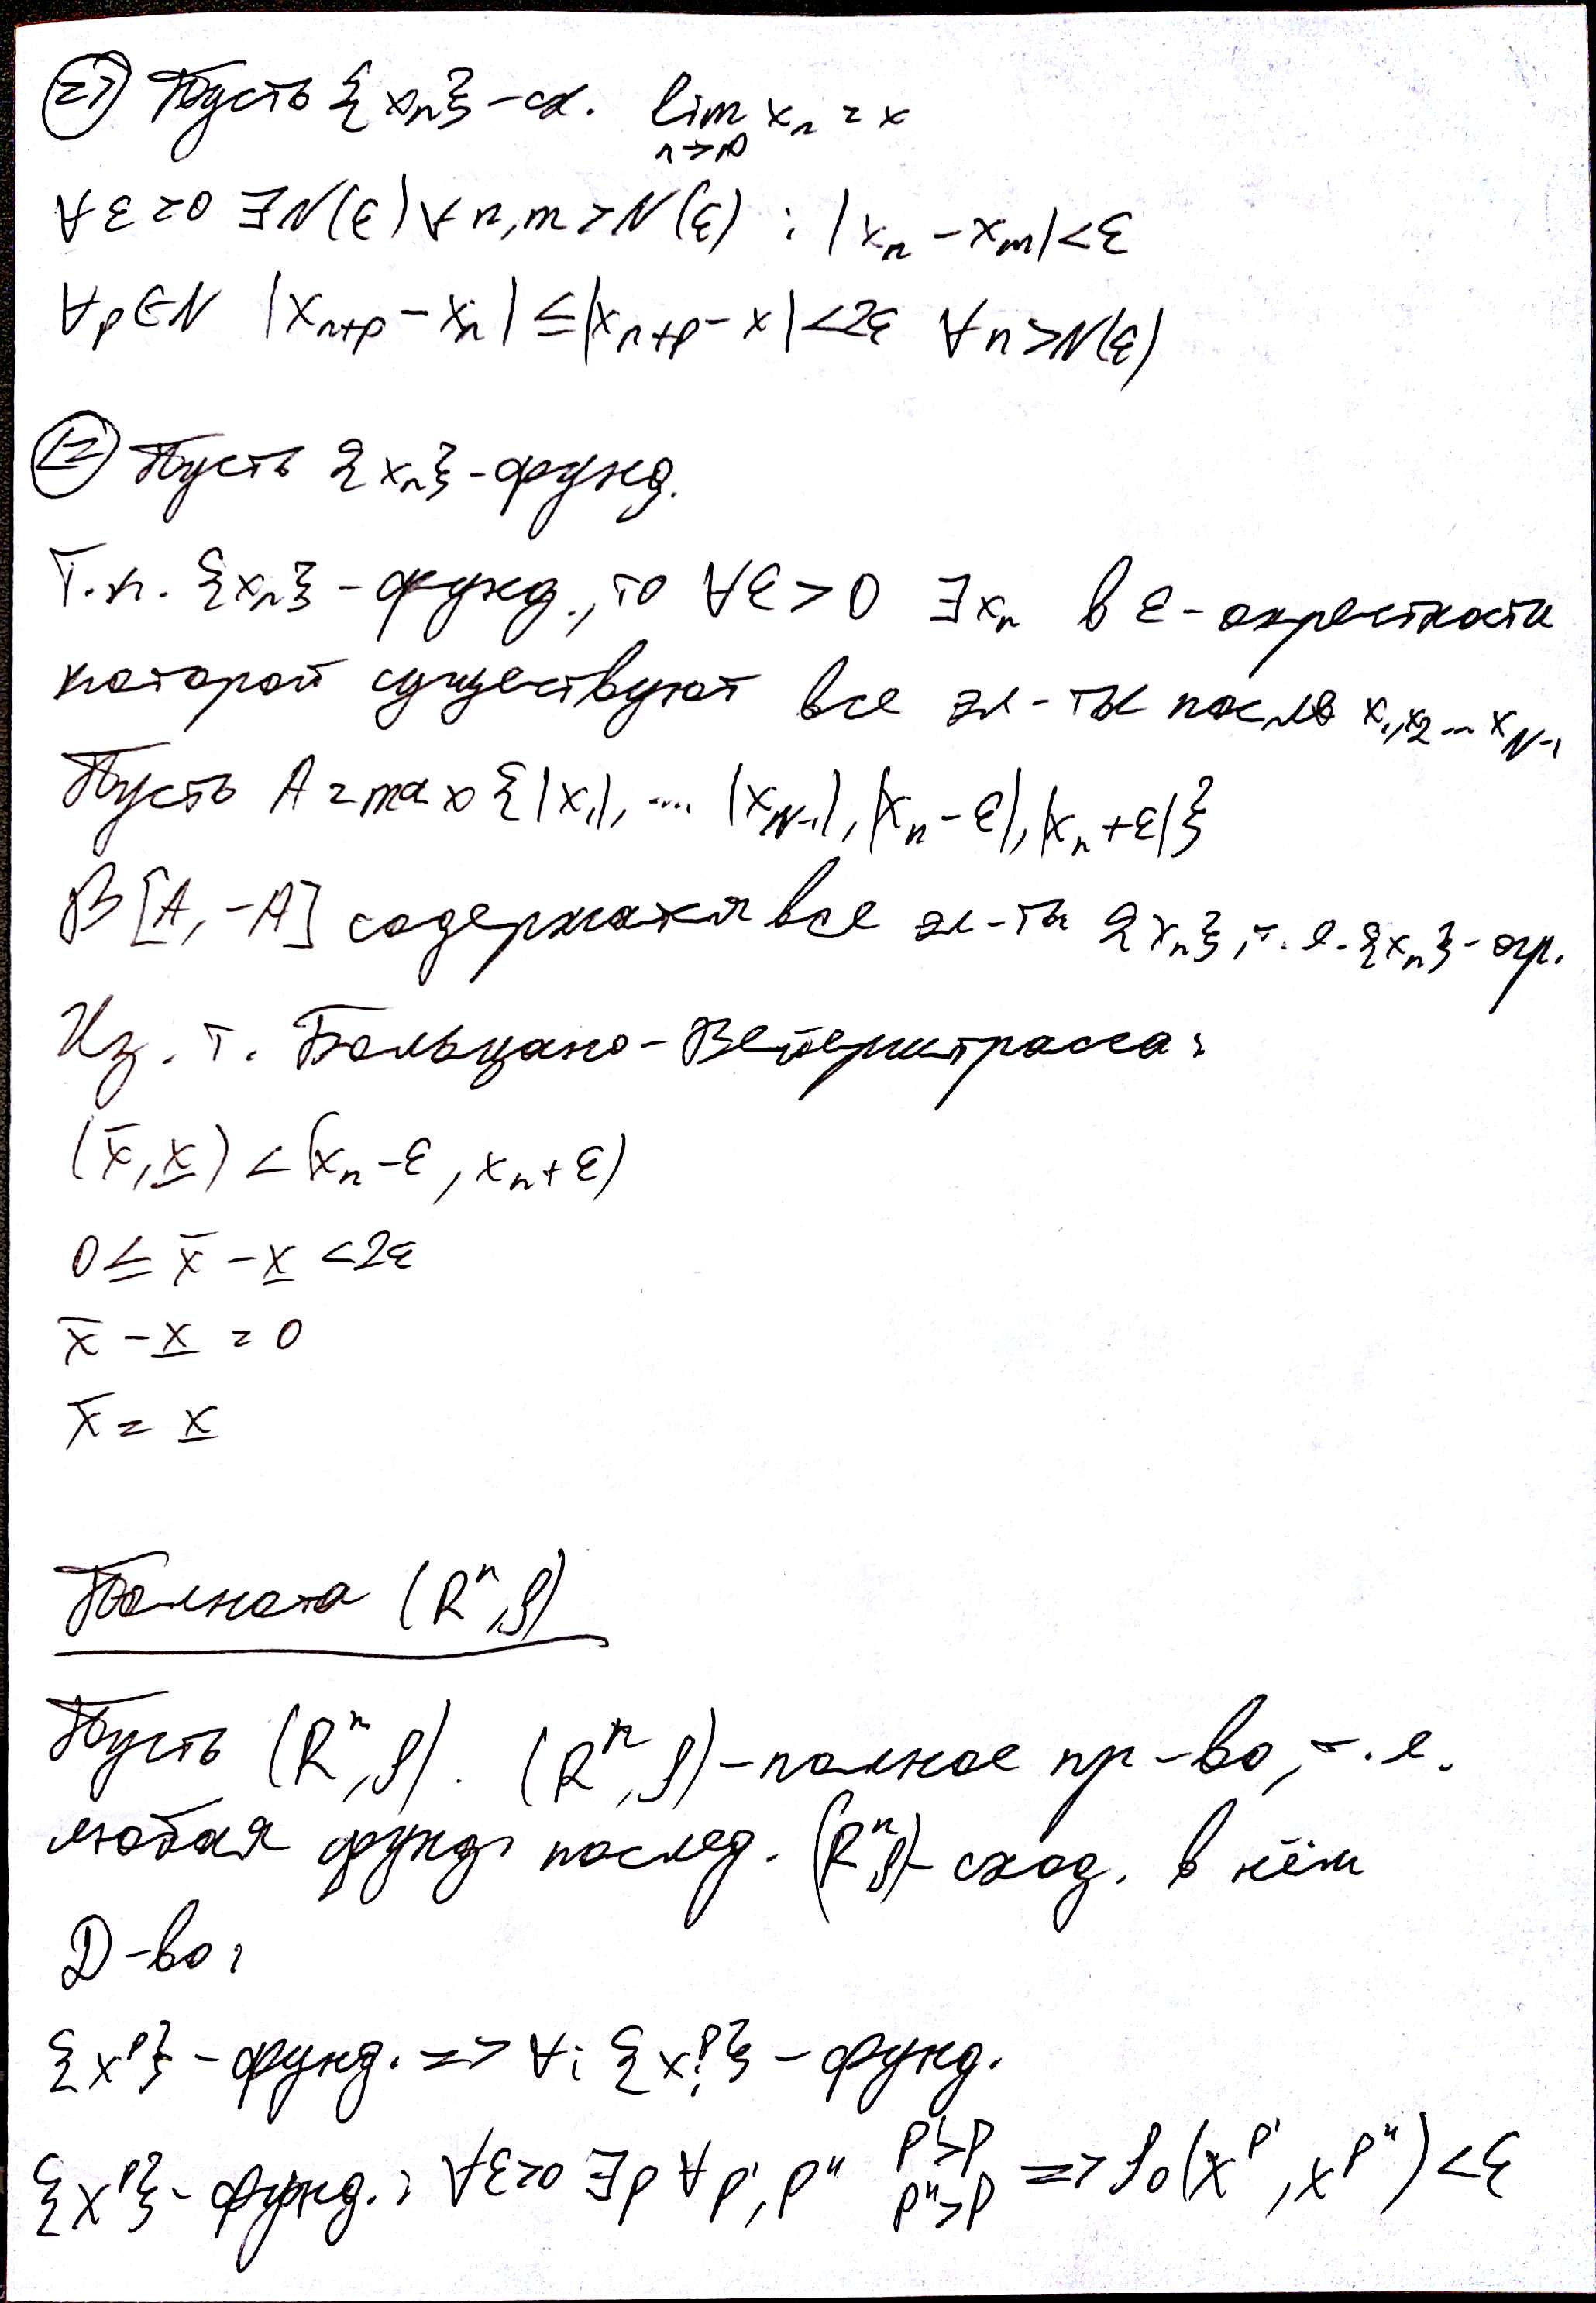 (=>) Пусть {xₙ} - сх. lim xₙ = x
n→∞
∀ε>0 ∃N(ε) ∀n,m>N(ε) : |xₙ - xₘ|<ε
∀p∈N |xₙ₊ₚ - xₙ| ≤ |xₙ₊ₚ - x| <2ε ∀n>N(ε)
(<=) Пусть {xₙ} - фунд.
Т.к. {xₙ} - фунд., то ∀ε>0 ∃xₙ в ε-окрестности
которой существуют все эл-ты после x₁,x₂...x_N-1
Пусть A = max{|x₁|, .... |x_N-1|, |xₙ - ε|, |xₙ + ε|}
В [A, -A] содержатся все эл-ты {xₙ}, т.е. {xₙ} - огр.
Из. т. Больцано-Вейерштрасса:
(x̄, x̲) < (xₙ - ε, xₙ + ε)
0 ≤ x̄ - x̲ < 2ε
x̄ - x̲ = 0
x̄ = x̲
Полнота (Rⁿ, ρ)
Пусть (Rⁿ, ρ). (Rⁿ, ρ) - полное пр-во, т.е.
любая фунд. послед. (Rⁿ, ρ) - сход. в нём
Д-во:
{xᵖ} - фунд. => ∀i {xᵢᵖ} - фунд.
{xᵖ} - фунд.: ∀ε>0 ∃p ∀p', p'' p'>p p''>p => ρ₀(x^p', x^p'') < ε